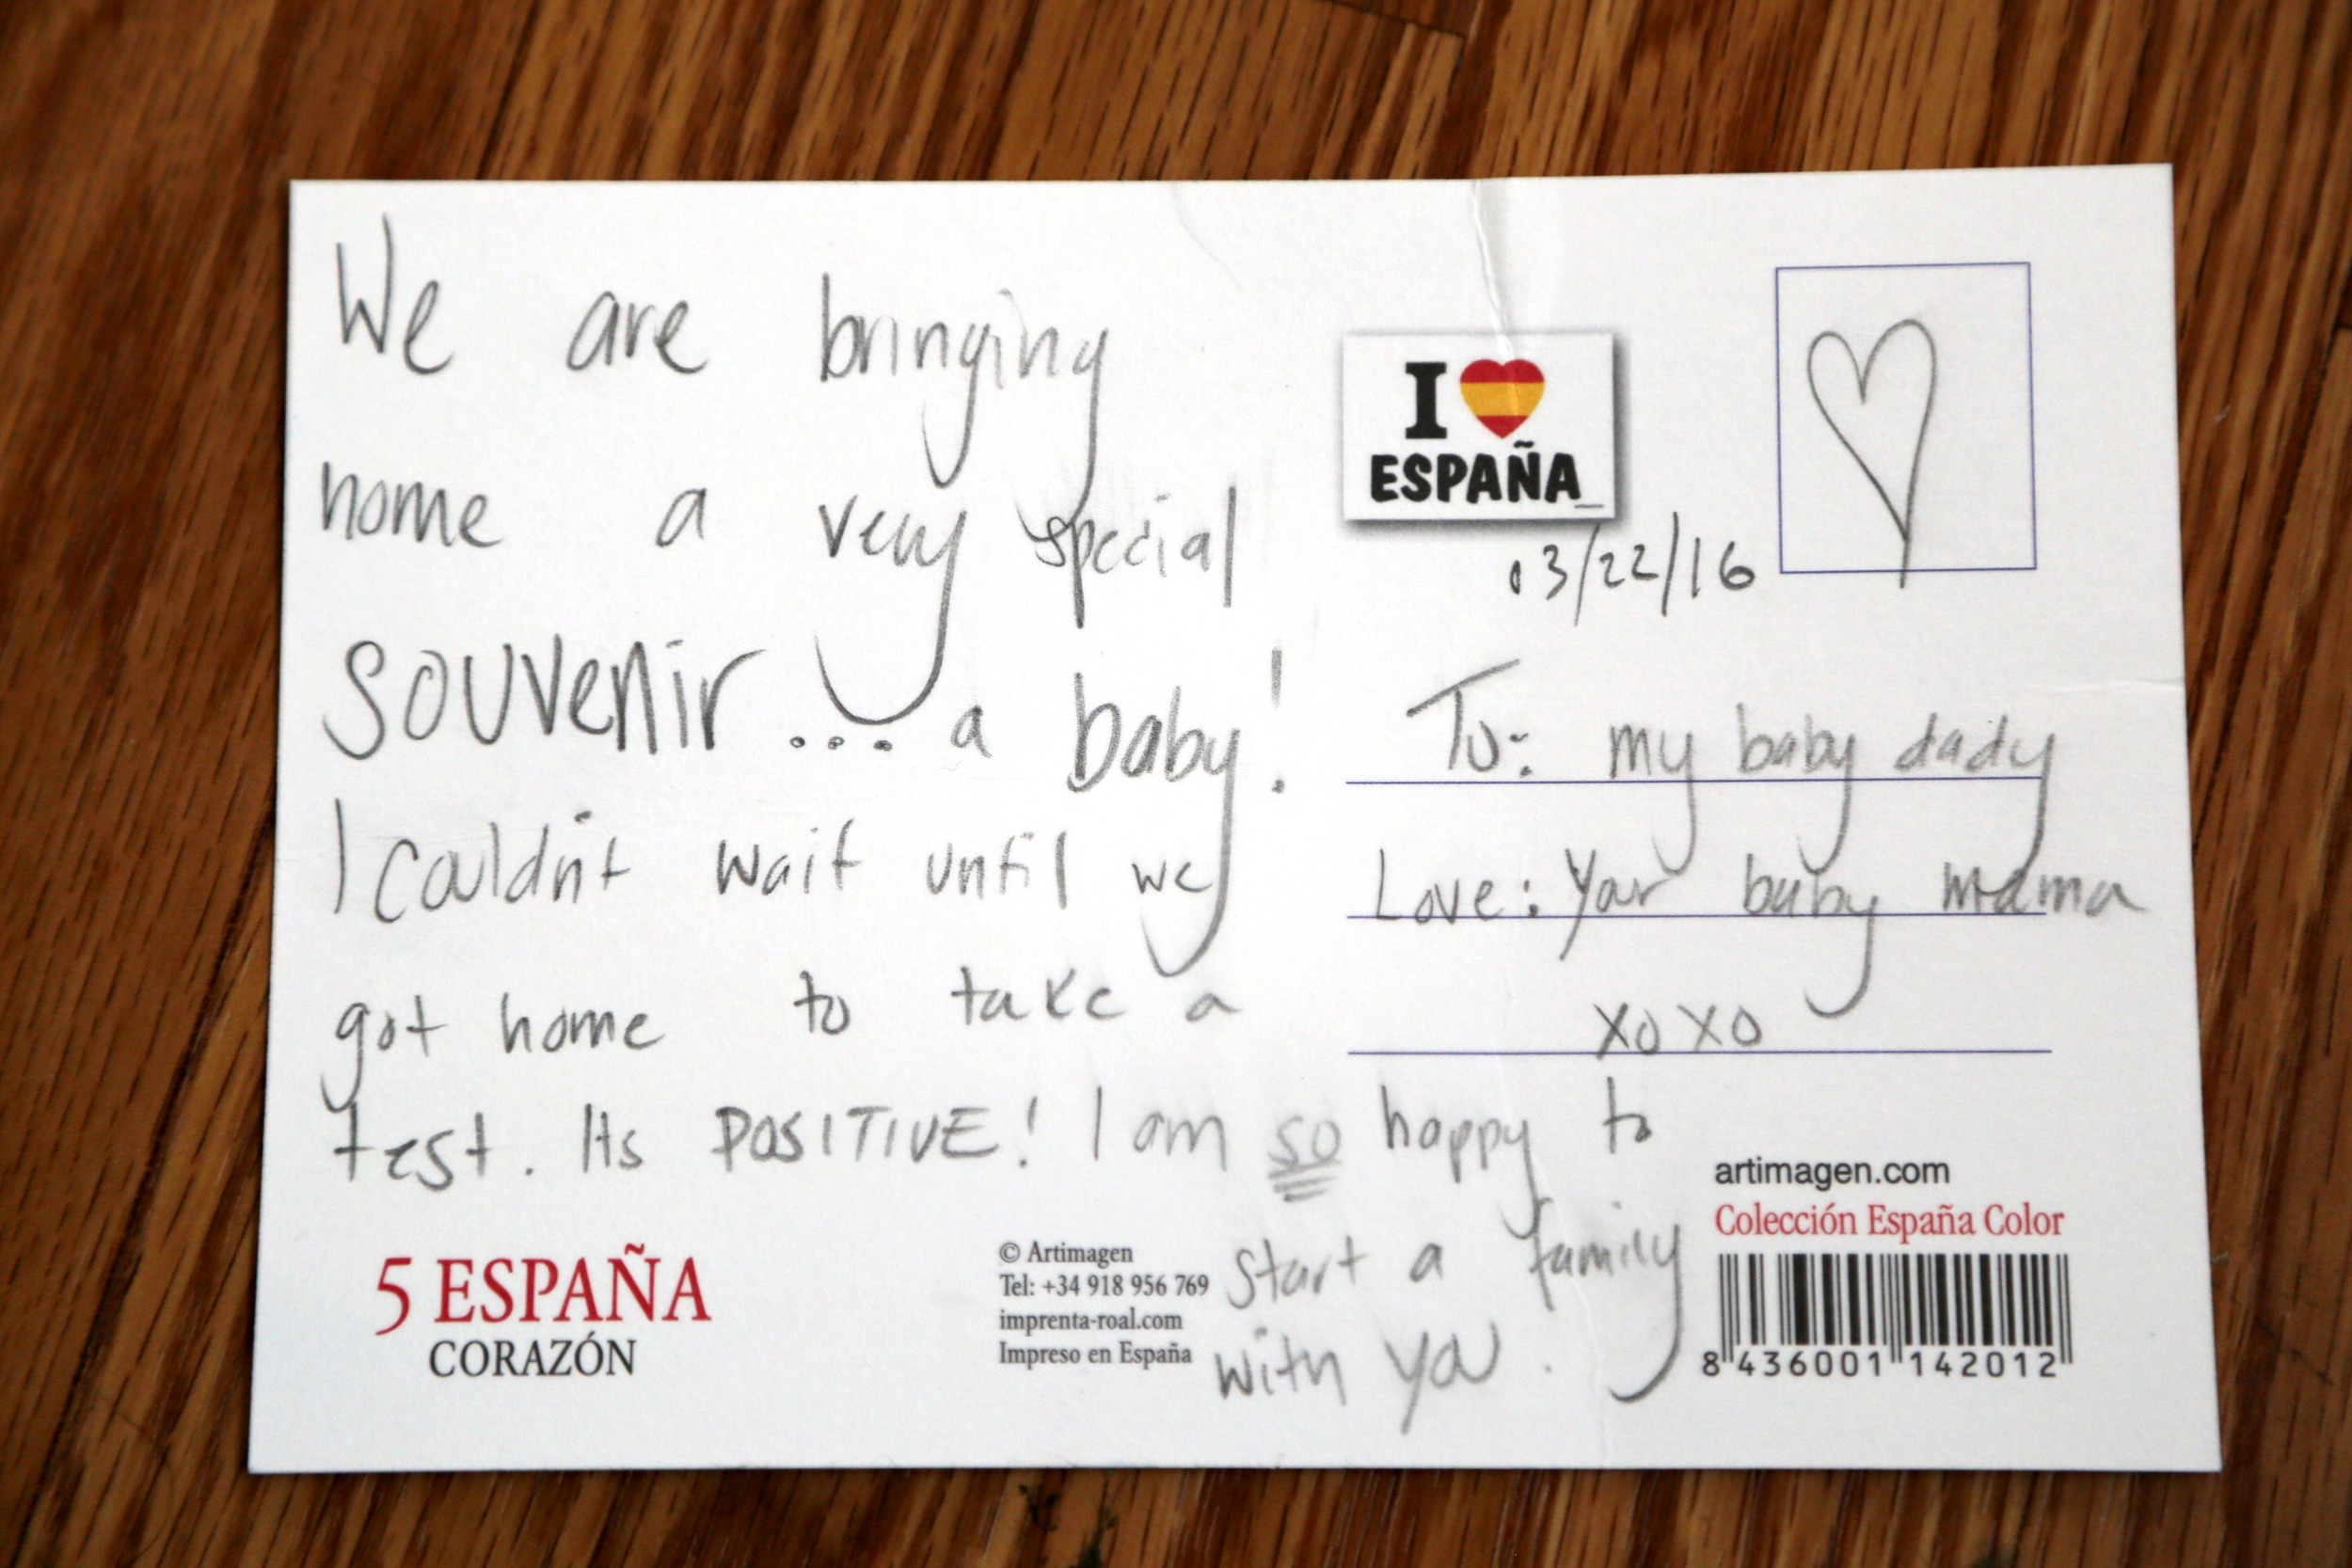 We are bringing
home a very special
souvenir... a baby!
I couldn't wait until we
got home to take a
test. Its POSITIVE! I am so happy to
start a family
with you.
I ♥
ESPAÑA
03/22/16
To: my baby dady
Love: Your baby mama
xoxo
5 ESPAÑA
CORAZÓN
© Artimagen
Tel: +34 918 956 769
imprenta-roal.com
Impreso en España
artimagen.com
Colección España Color
8 436001 142012